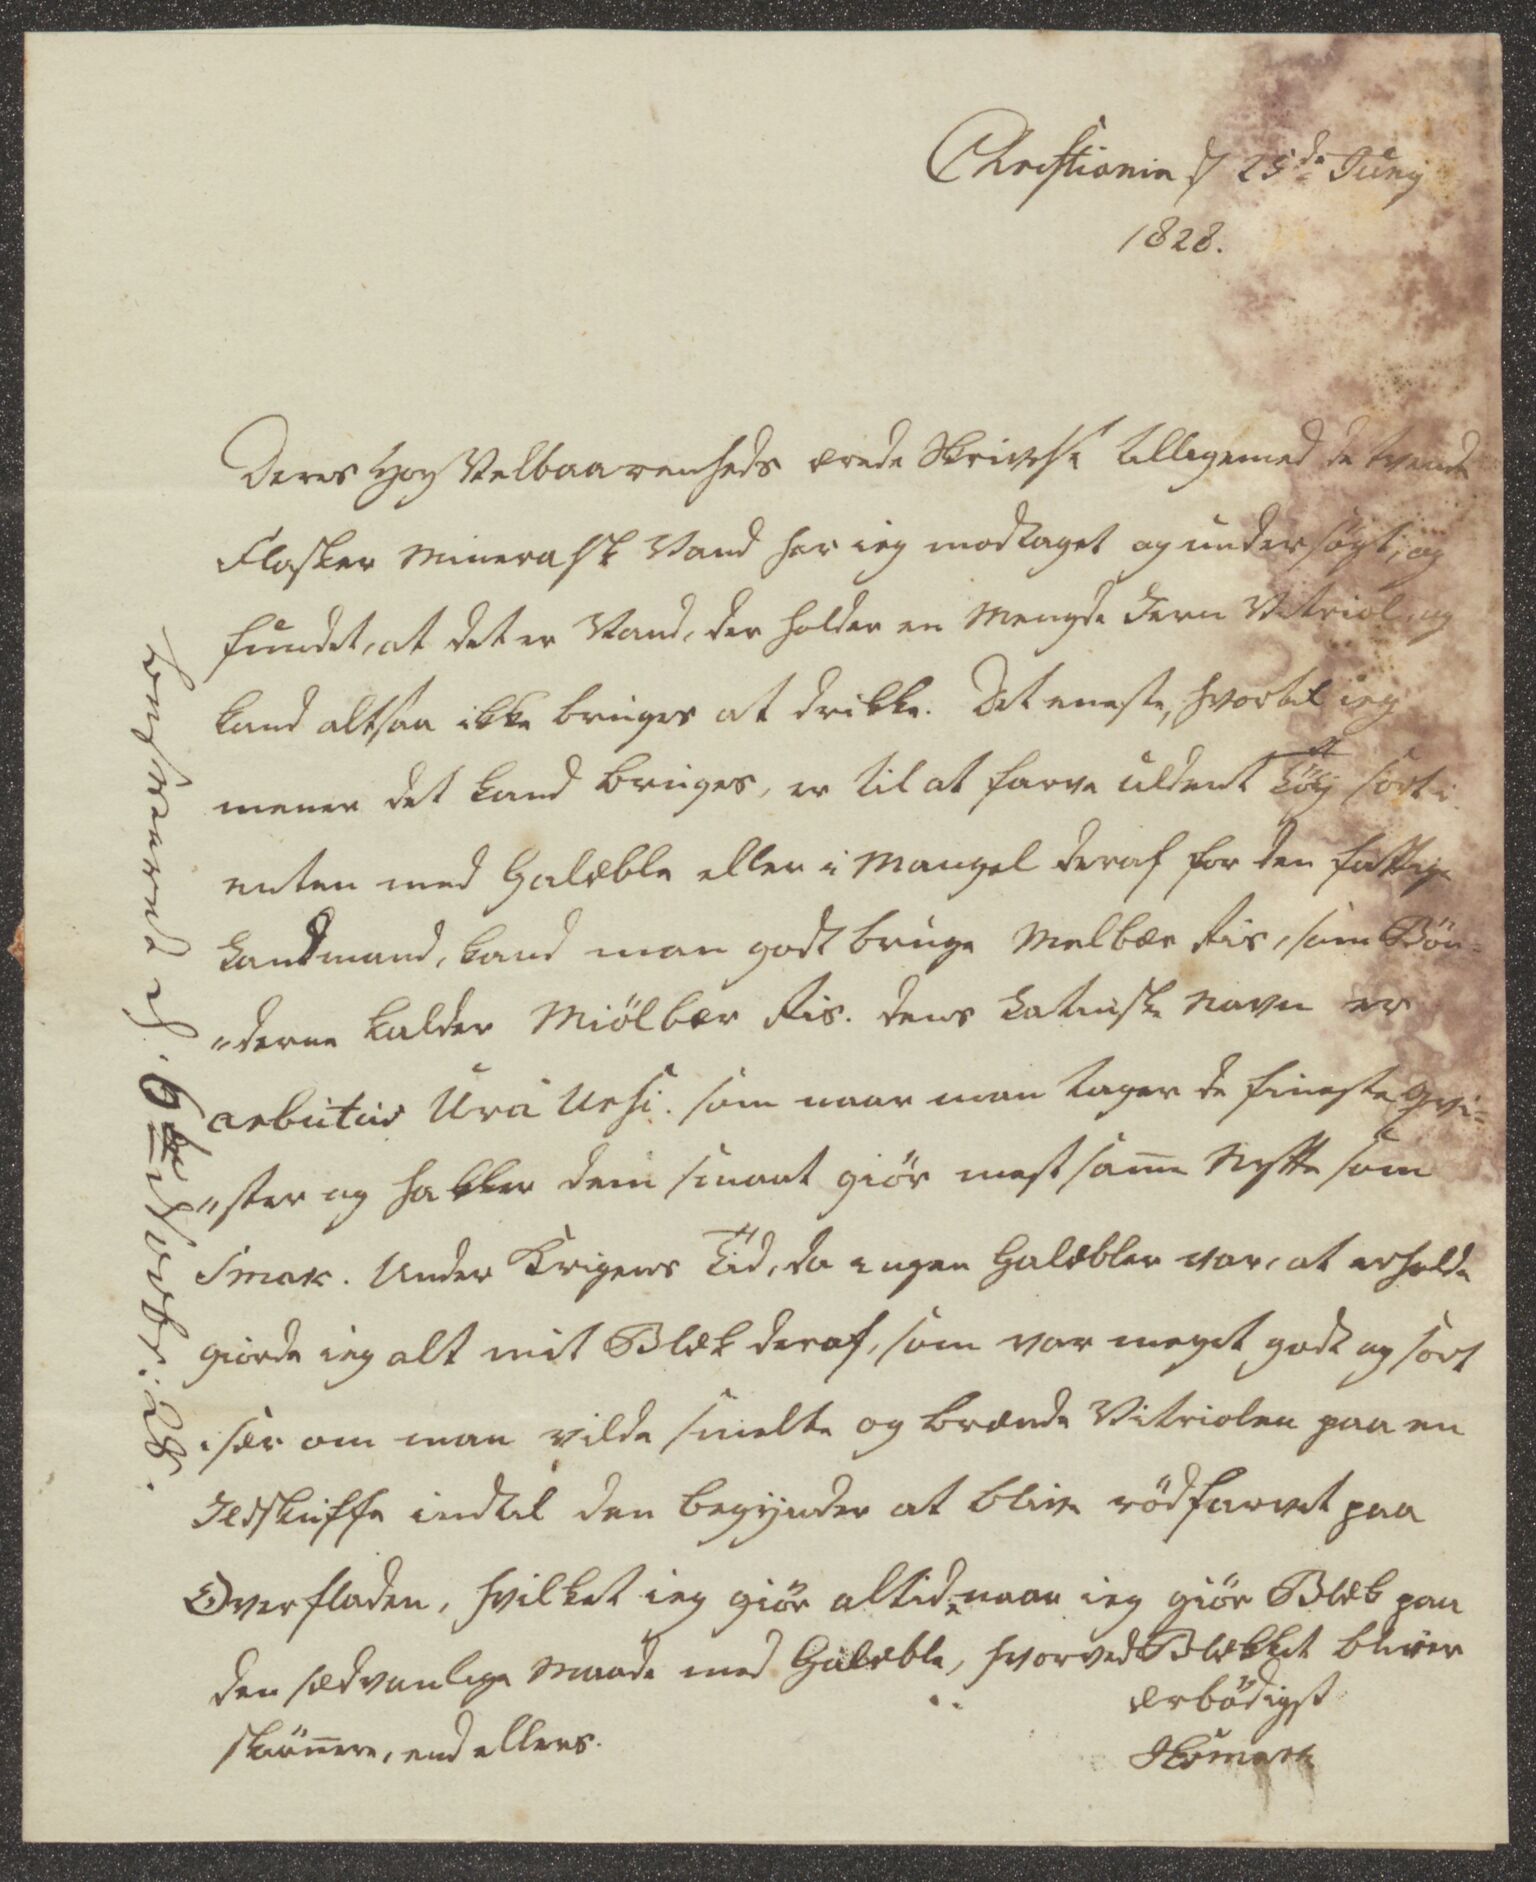 Christiania d 25de Juny
1828.
Deres Høy Velbaarenheds ærede Skrivelse tilligemed de tvende
Flasker Mineralsk Vand har ieg modtaget og undersøgt, og
fundet, at det er Vand, der holder en Mengde Jern Vitriol, og
kand altsaa ikke bruges at drikke. Det eneste, hvortil ieg
mener det kand bruges, er til at farve uldent Töy sort i
enten med Galæble eller i Mangel deraf for den fattige
Landmand, kand man godt bruge Melbær Ris, som Bön-
"derne kalder Miölbær Ris. dens Latinske Navn er
arbutus Uva Ursi. som naar man tager de fineste Qvi-
"ster og hakker dem smaat giör mest samme Nytte som
Smak. Under Krigens Tid, da ingen Galæbler var, at erholde
giorde ieg alt mit Blæk deraf, som var meget godt og sort
især om man vilde smelte og brænde Vitriolen paa en
Ildskuffe indtil den begynder at blive rödfarvet paa
Overfladen, hvilket ieg giör altid, naar ieg giör Blæk paa
den sædvanlige Maade med Galæble, hvorved Blækket bliver
skiönnere, end ellers.
ærbödigst
HEsmark
besvaret d. 6te Novbr: 28.